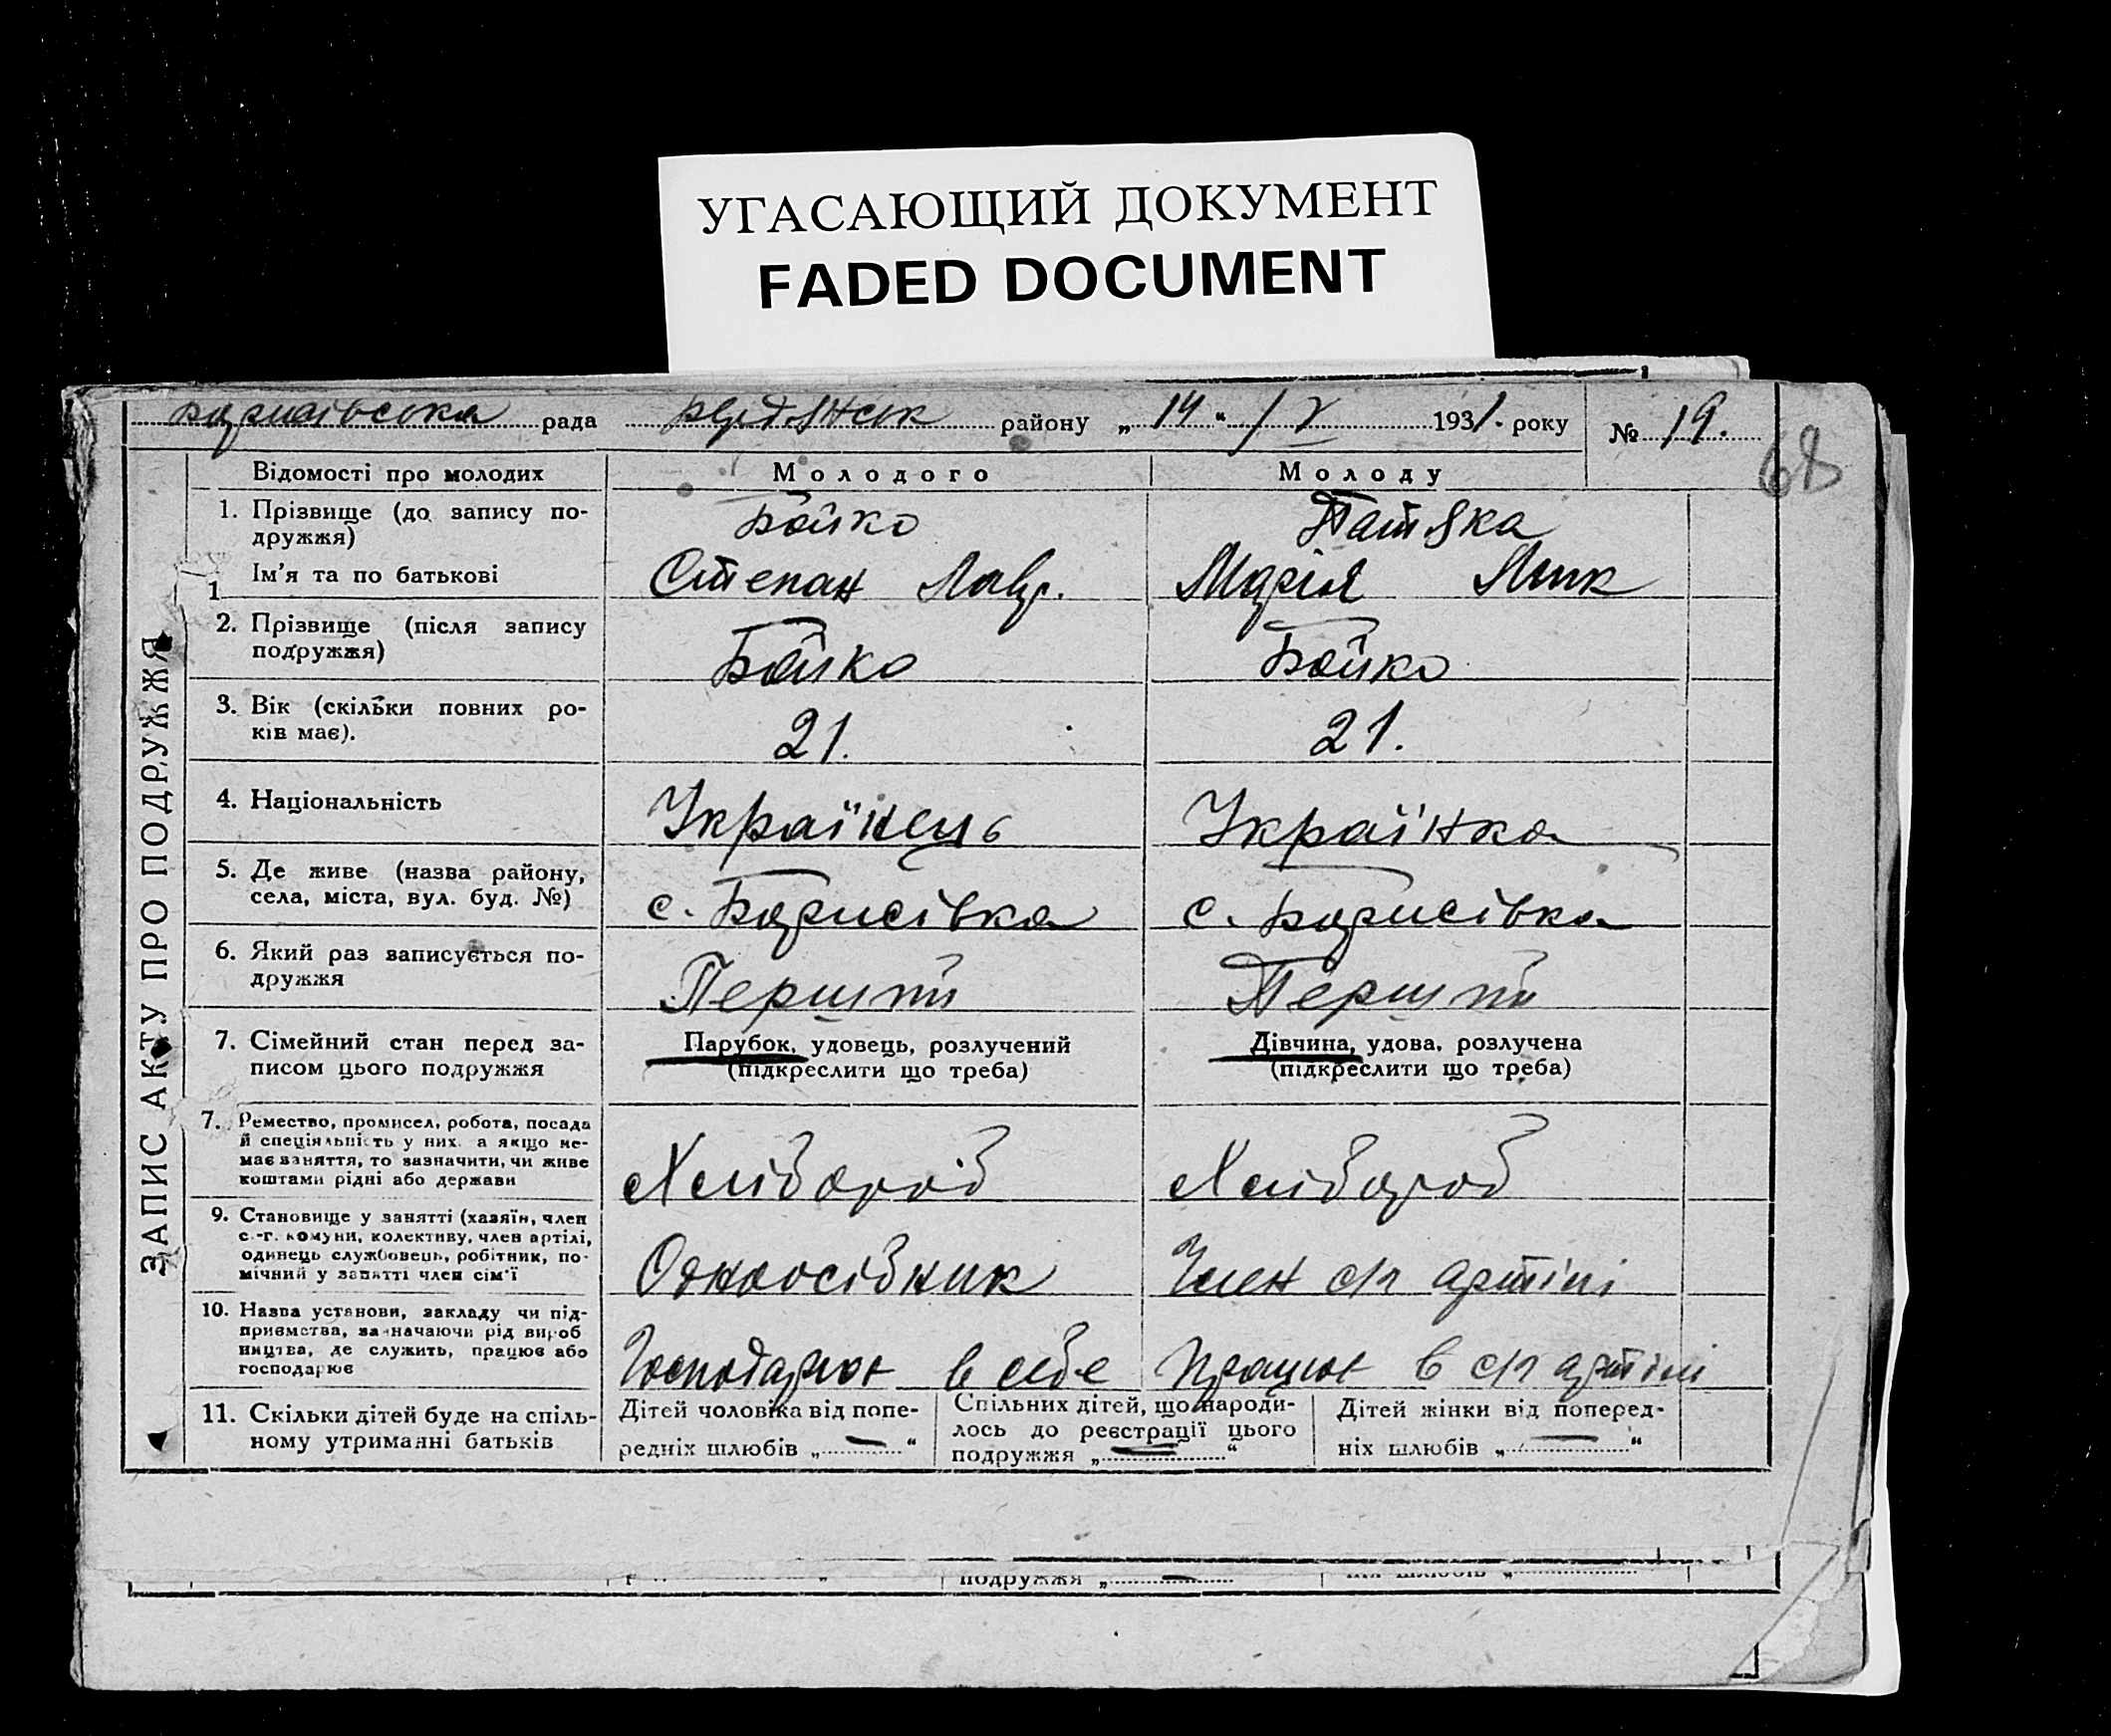 УГАСАЮЩИЙ ДОКУМЕНТ
FADED DOCUMENT
Борисівська рада Бердянськ району „14“ / V 1931. року № 19.
68
ЗАПИС АКТУ ПРО ПОДРУЖЖЯ
Відомості про молодих Молодого Молоду
1. Прізвище (до запису по-
дружжя) Бойко Патяка
1 Ім'я та по батькові Степан Лавр. Марія Мик
2. Прізвище (після запису
подружжя) Бойко Бойко
3. Вік (скільки повних ро-
ків має). 21. 21.
4. Національність Українець Українка
5. Де живе (назва району,
села, міста, вул. буд. №) с. Борисівка с. Борисівка
6. Який раз записується по-
дружжя Перший Перший
7. Сімейний стан перед за-
писом цього подружжя
Парубок, удовець, розлучений
(підкреслити що треба)
Дівчина, удова, розлучена
(підкреслити що треба)
7. Ремество, промисел, робота, посада
й спеціяльність у них, а якщо не-
має заняття, то зазначити, чи живе
коштами рідні або держави
Хлібороб Хлібороб
9. Становище у занятті (хазяїн, член
с.-г. комуни, колективу, член артілі,
одинець службовець, робітник, по-
мічний у занятті член сім'ї
Одноосібник Член с/г артілі
10. Назва установи, закладу чи під-
приємства, зазначаючи рід вироб
ництва, де служить, працює або
господарює
Господарює в себе Працює в с/г артілі
11. Скільки дітей буде на спіль-
ному утриманні батьків
Дітей чоловіка від попе-
редніх шлюбів „ — “
Спільних дітей, що народи-
лось до реєстрації цього
подружжя „ — “
Дітей жінки від поперед-
ніх шлюбів „ — “
подружжя „ — ніх шлюбів „